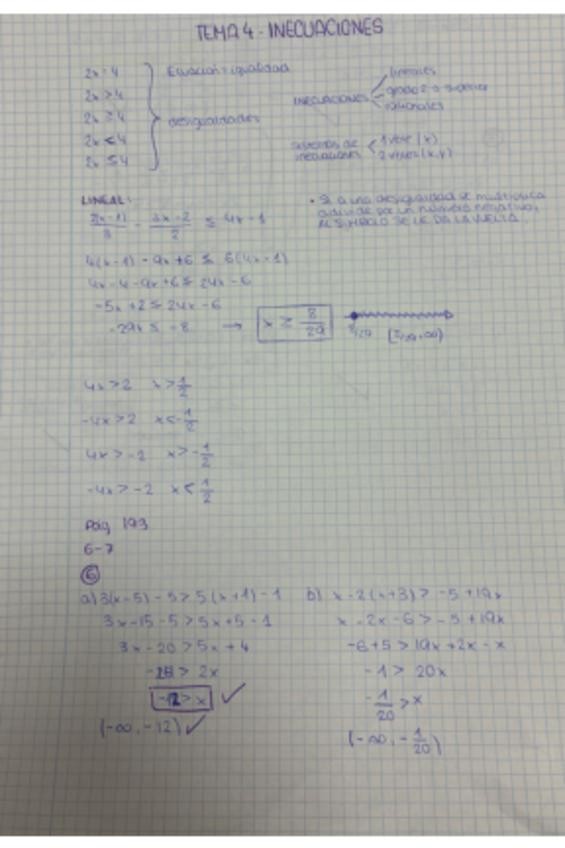 TEMA 4 - INECUACIONES
2x = 4
Ecuación = igualdad
2x > 4
2x ≥ 4
desigualdades
2x < 4
2x ≤ 4
INECUACIONES
lineales
grado 2 o superior
racionales
sistemas de inecuaciones
1 vble (x)
2 vbles (x,y)
LINEAL:
2(x-1)/3 - 3x-2/2 ≤ 4x-1
• Si a una desigualdad se multiplica
o divide por un número negativo,
AL SIMBOLO SE LE DA LA VUELTA
4(x-1) - 9x+6 ≤ 6(4x-1)
4x-4-9x+6 ≤ 24x-6
-5x+2 ≤ 24x-6
-29x ≤ -8 → x ≥ 8/29
8/29 [8/29, +∞)
4x>2 x>1/2
-4x>2 x<-1/2
4x>-2 x>-1/2
-4x>-2 x<1/2
Pág 193
6-7
⑥
a) 3(x-5)-5>5(x+1)-1
3x-15-5>5x+5-1
3x-20>5x+4
> 2x
-12 > x ✓
(-∞, -12) ✓
b) x-2(x+3)>-5+19x
x-2x-6>-5+19x
-6+5>19x+2x-x
-1>20x
-1/20 > x
(-∞, -1/20)